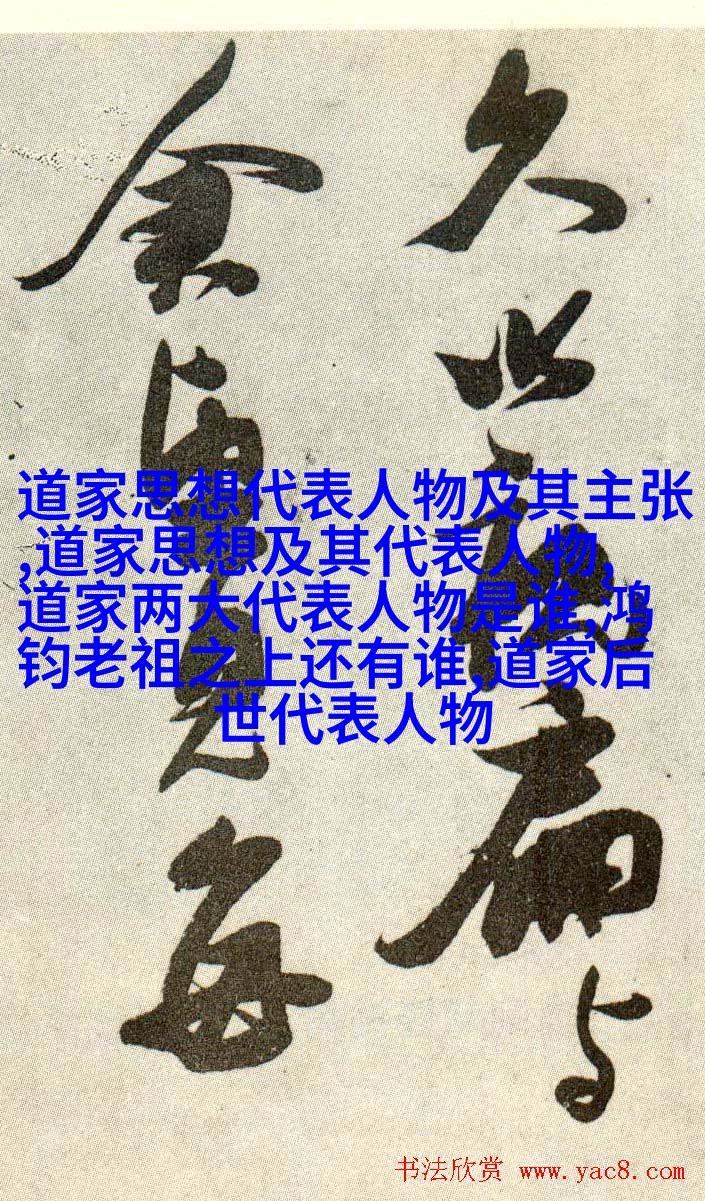 久此
見每
道家思想代表人物及其主张
,道家思想及其代表人物,
道家两大代表人物是谁,鸿
钧老祖之上还有谁,道家后
世代表人物
书法欣赏 www.yac8.com